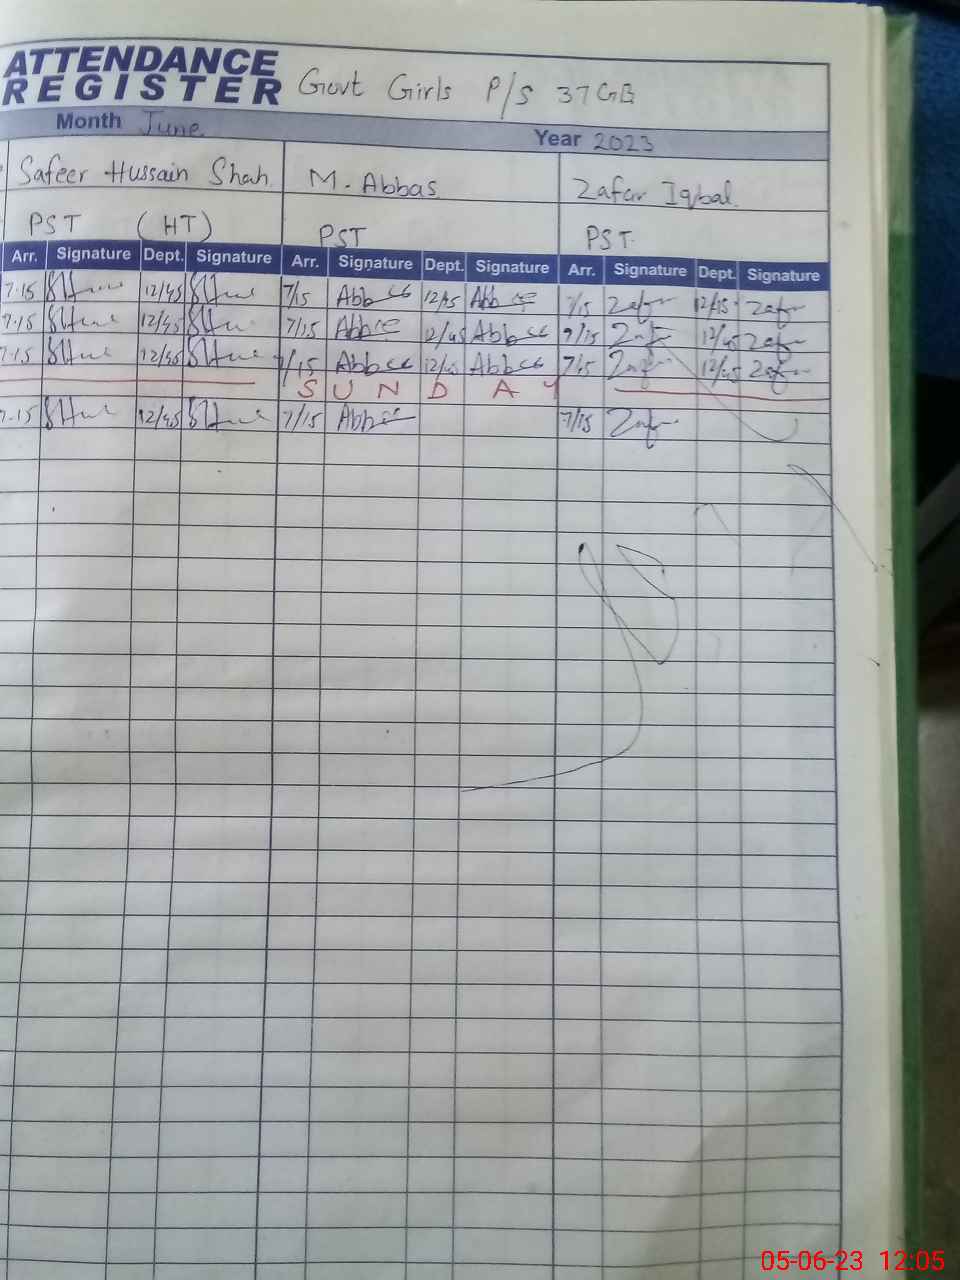 ATTENDANCE
REGISTER Govt Girls P/S 37GB
Month June Year 2023
Safeer Hussain Shah M. Abbas Zafar Iqbal.
PST (HT) PST PST.
Arr. Signature Dept. Signature Arr. Signature Dept. Signature Arr. Signature Dept. Signature
7.15 12/45 7/15 Abbas 12/45 Abbas 7/15 Zafar 12/45 Zafar
7.15 12/45 7/15 Abbas 12/45 Abbas 7/15 Zafar 12/45 Zafar
7.15 12/45 7/15 Abbas 12/45 Abbas 7/15 Zafar 12/45 Zafar
SUNDAY
7.15 12/45 7/15 Abbas 7/15 Zafar
05-06-23 12:05